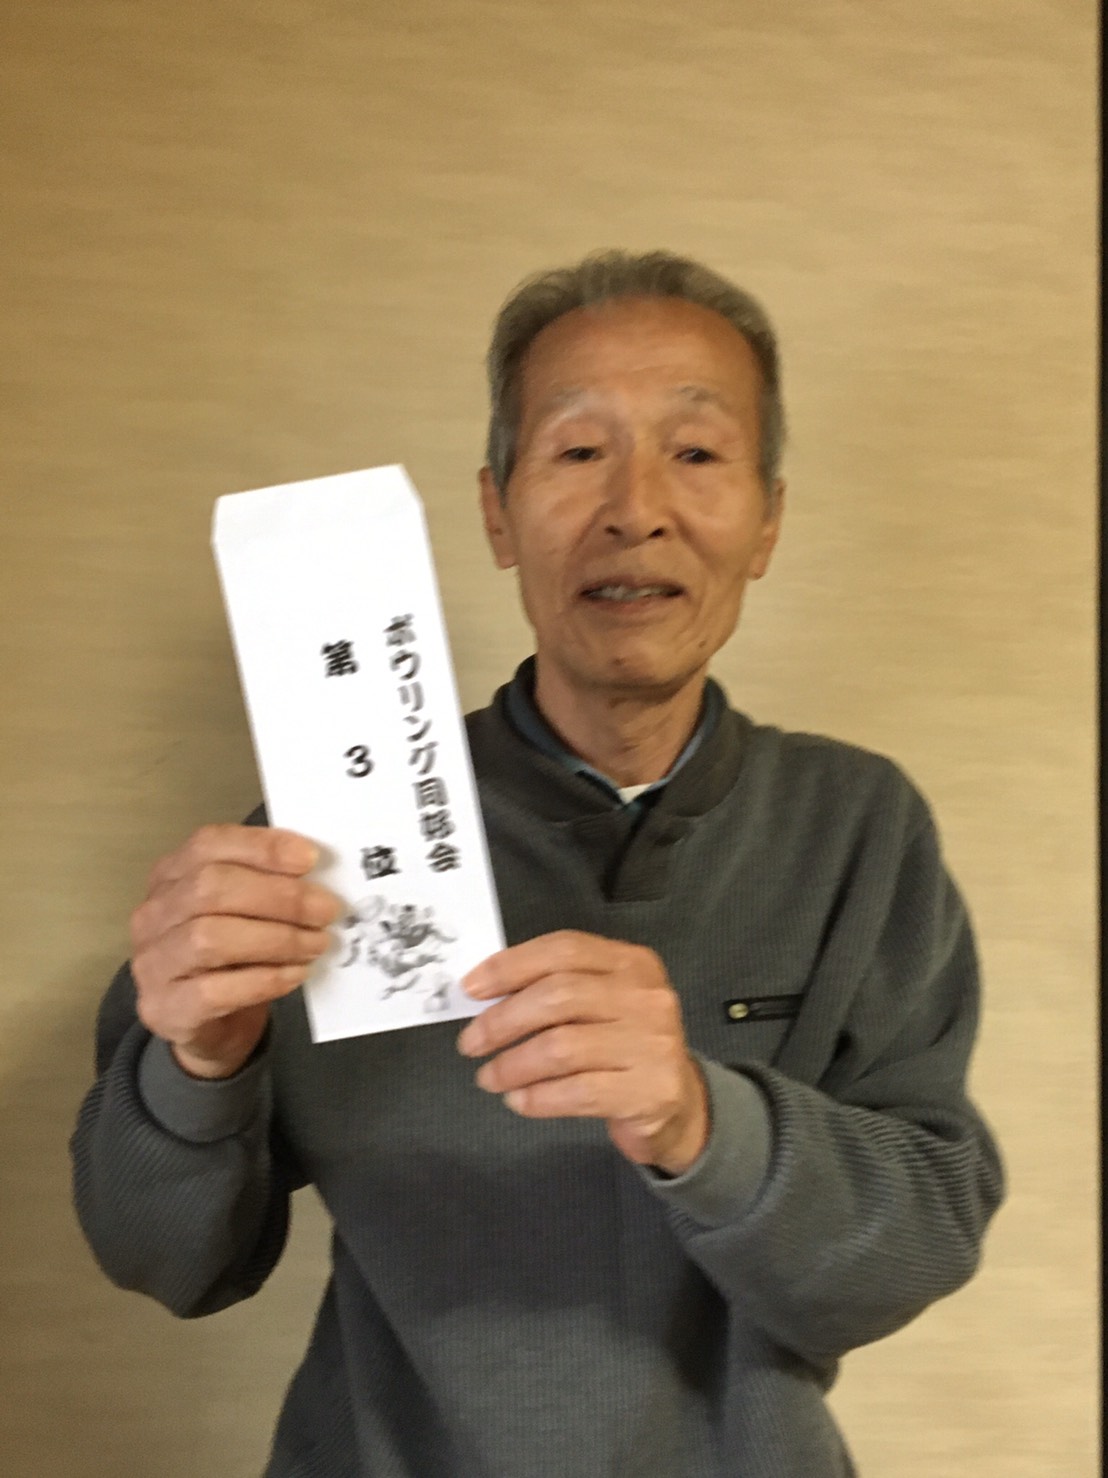 ボウリング同好会
第3位